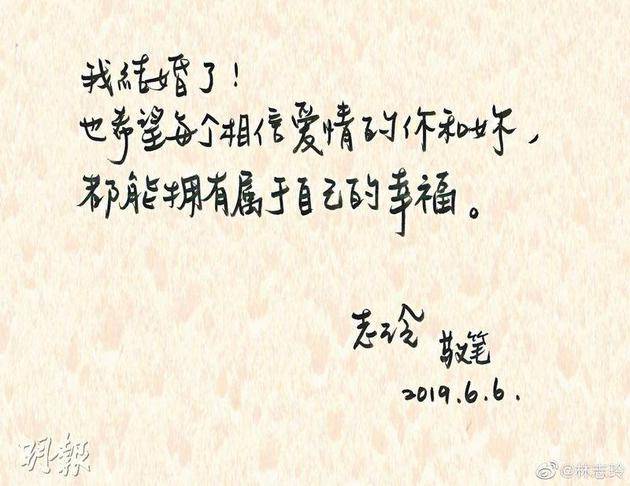 我結婚了!
也希望每个相信爱情的你和妳,
都能拥有属于自己的幸福。
志玲 敬笔
2019.6.6.
明報
@林志玲